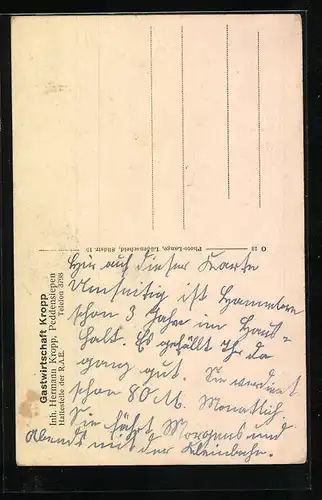 Gastwirtschaft Kropp
Inh. Hermann Kropp, Peddensiepen
Haltestelle der R.A.E. Telefon 3798
O 13 Photo-Lange, Lüdenscheid, Südstr. 15
Hier auf dieser Karte
Umseitig ist
schon 3 Jahre im Haus=
halt. Es gefällt Ihr da
ganz gut. Sie verdient
schon 80 M. Monatlich.
Sie fährt Morgens und
Abends mit der Kleinbahn.